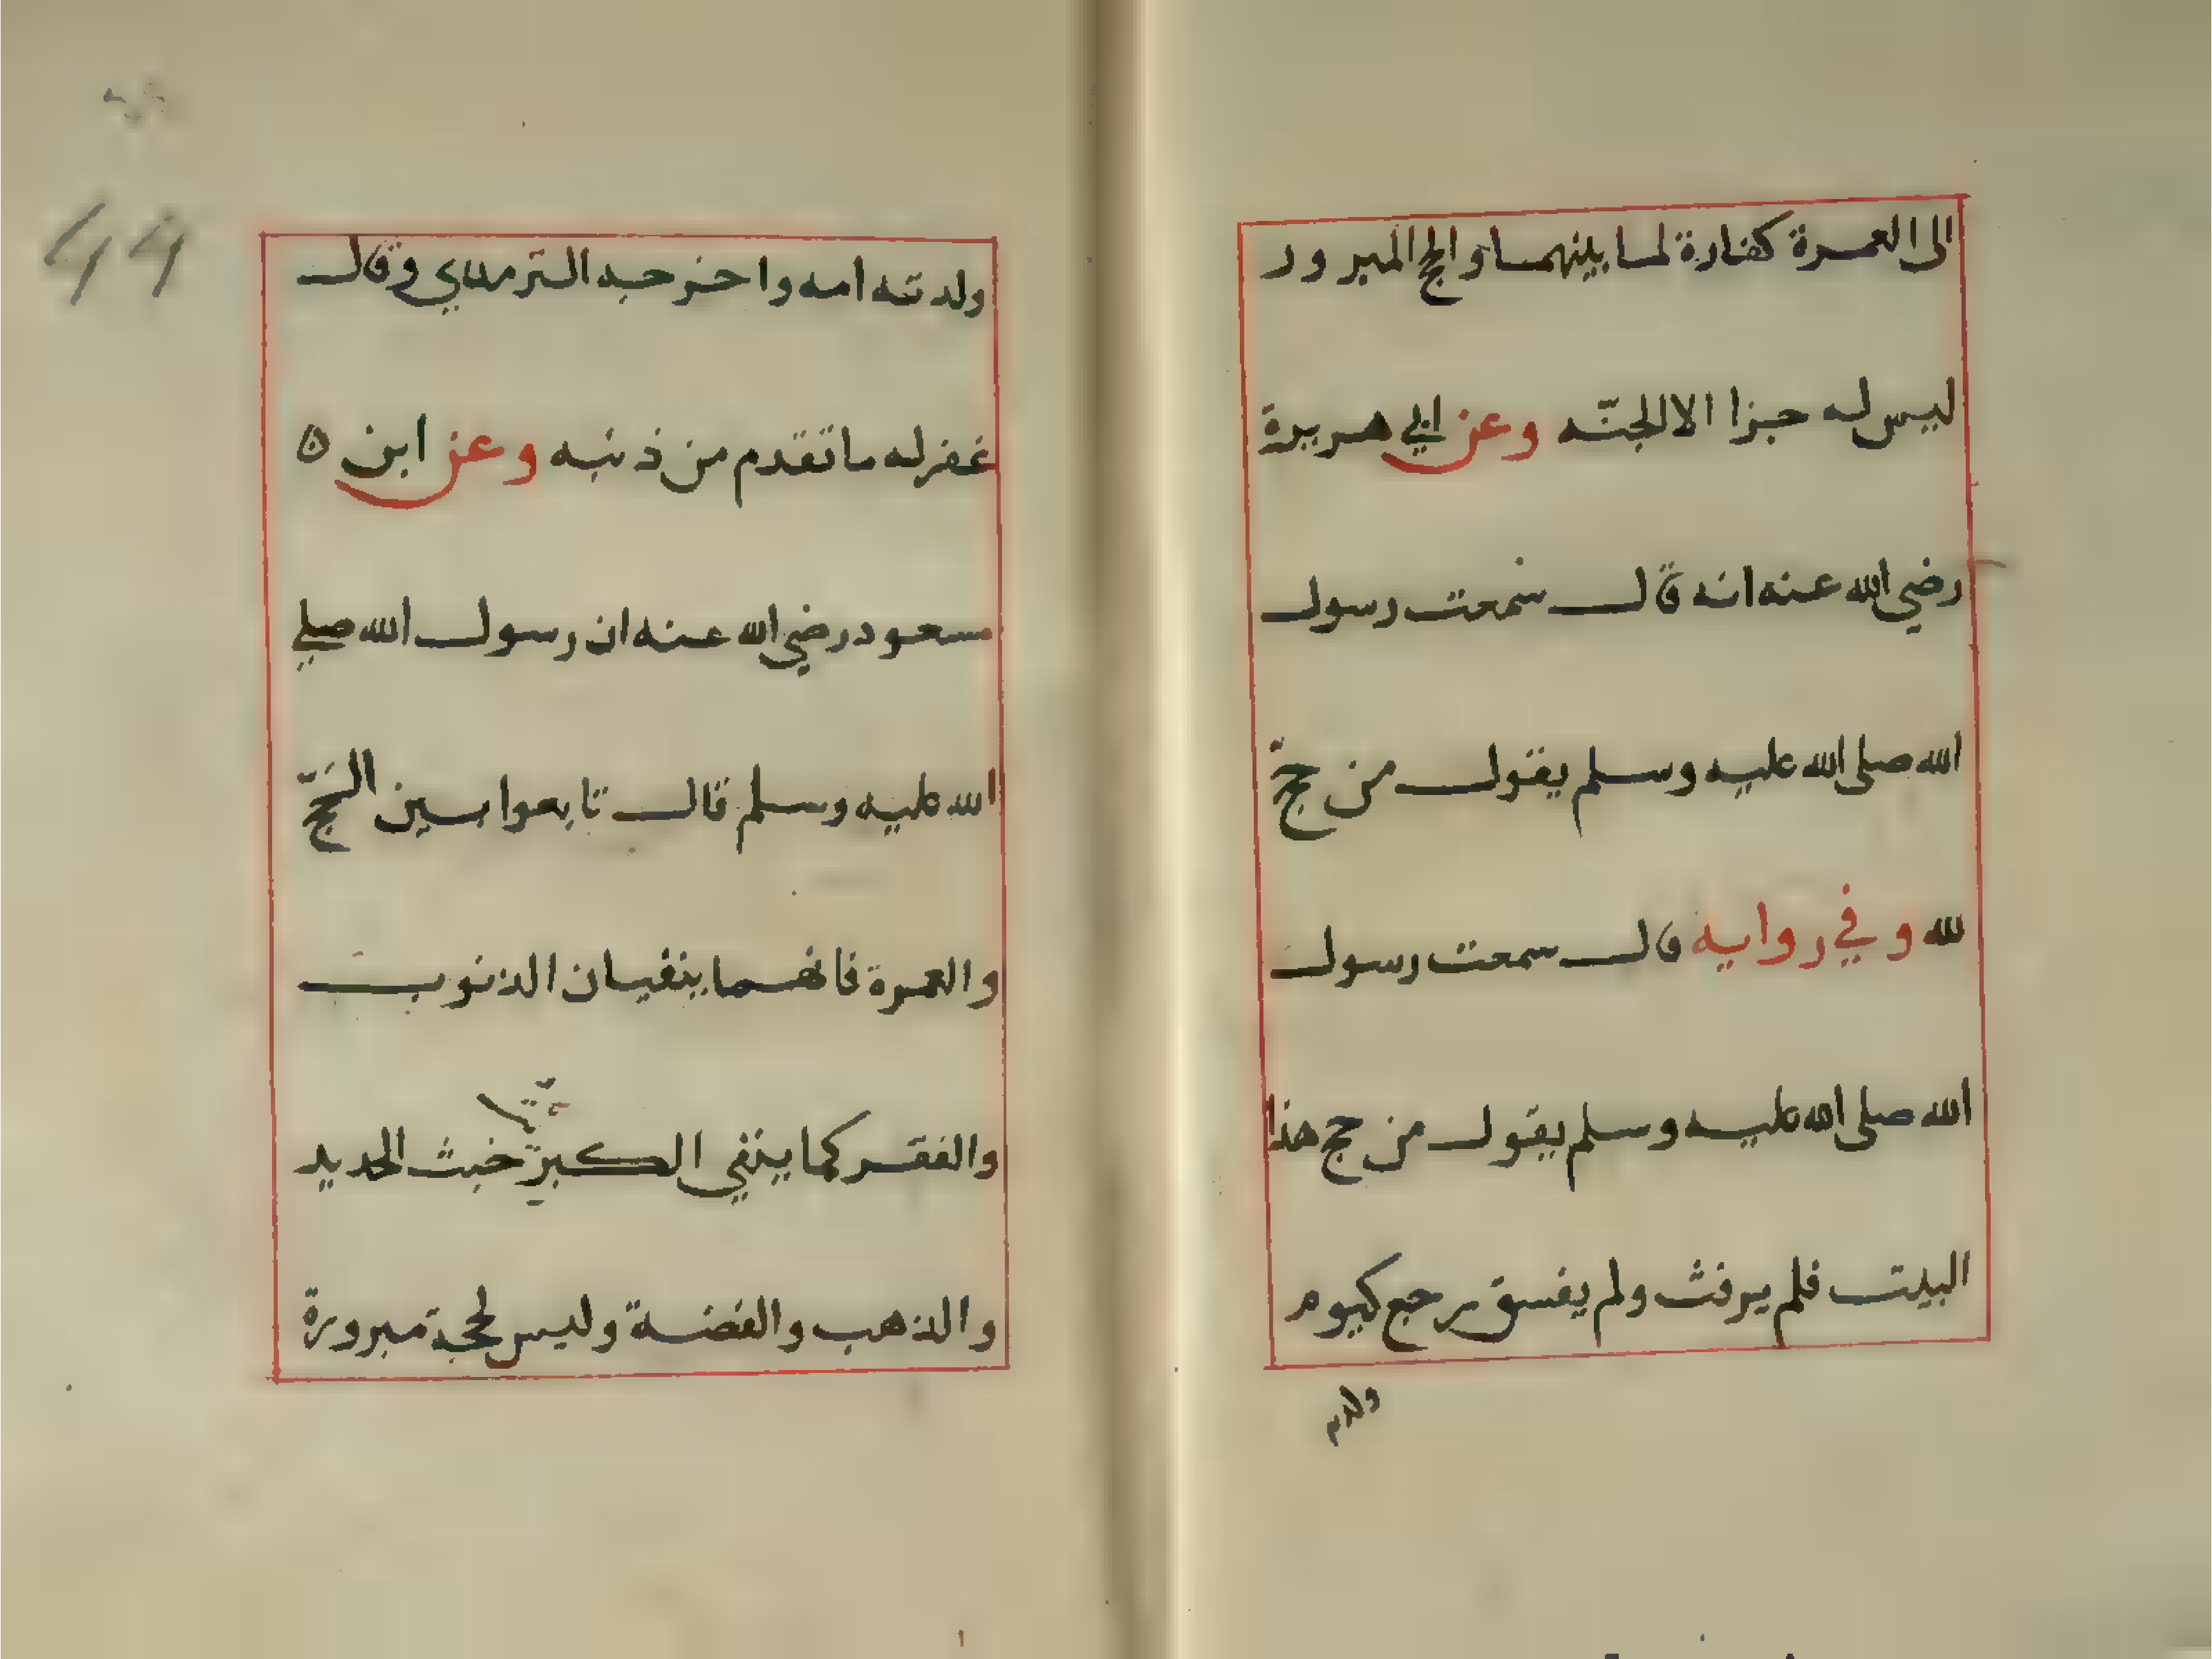 الى العمرة كفارة لما بينهما والحج المبرور
ليس له جزا الا الجنّه وعن ابي هريرة
رضي الله عنه انه قال سمعت رسول
الله صلى الله عليه وسلم يقول من حجّ
لله وفي روايه قال سمعت رسول
الله صلى الله عليه وسلم يقول من حج هذا
البيت فلم يرفث ولم يفسق رجع كيوم
ولدته
ولدته امه واخرجه الترمذي وقال
غفر له ما تقدم من ذنبه وعن ابن
مسعود رضي الله عنه ان رسول الله صلي
الله عليه وسلم قال تابعوا بين الحَجّ
والعمرة فانهما ينفيان الذنوب
والفقر كما ينفي الكير خبث الحديد
والذهب والفضة وليس لحجة مبرورة